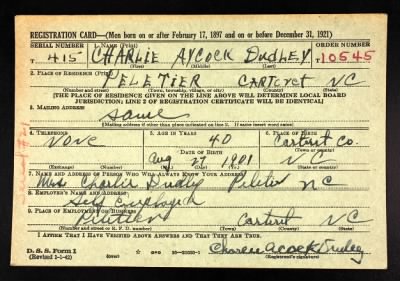 REGISTRATION CARD—(Men born on or after February 17, 1897 and on or before December 31, 1921)
SERIAL NUMBER 1. NAME (Print) ORDER NUMBER
T 415 CHARLIE AYCOCK DUDLEY T 10545
(First) (Middle) (Last)
2. PLACE OF RESIDENCE (Print)
PELETIER CARTERET NC
(Number and street) (Town, township, village, or city) (County) (State)
[THE PLACE OF RESIDENCE GIVEN ON THE LINE ABOVE WILL DETERMINE LOCAL BOARD
JURISDICTION; LINE 2 OF REGISTRATION CERTIFICATE WILL BE IDENTICAL]
3. MAILING ADDRESS
Same
[Mailing address if other than place indicated on line 2. If same insert word same]
4. TELEPHONE 5. AGE IN YEARS 6. PLACE OF BIRTH
None 40 Carteret Co.
DATE OF BIRTH (Town or county)
Aug 27 1901 NC
(Exchange) (Number) (Mo.) (Day) (Yr.) (State or country)
7. NAME AND ADDRESS OF PERSON WHO WILL ALWAYS KNOW YOUR ADDRESS
Mrs Charlie Dudley Peletier NC
8. EMPLOYER'S NAME AND ADDRESS
Self Employed
9. PLACE OF EMPLOYMENT OR BUSINESS
Peletier Carteret NC
(Number and street or R. F. D. number) (Town) (County) (State)
I AFFIRM THAT I HAVE VERIFIED ABOVE ANSWERS AND THAT THEY ARE TRUE.
D. S. S. Form 1
(Revised 1-1-42) (over) Charlie Acock Dudley
(Registrant's signature)